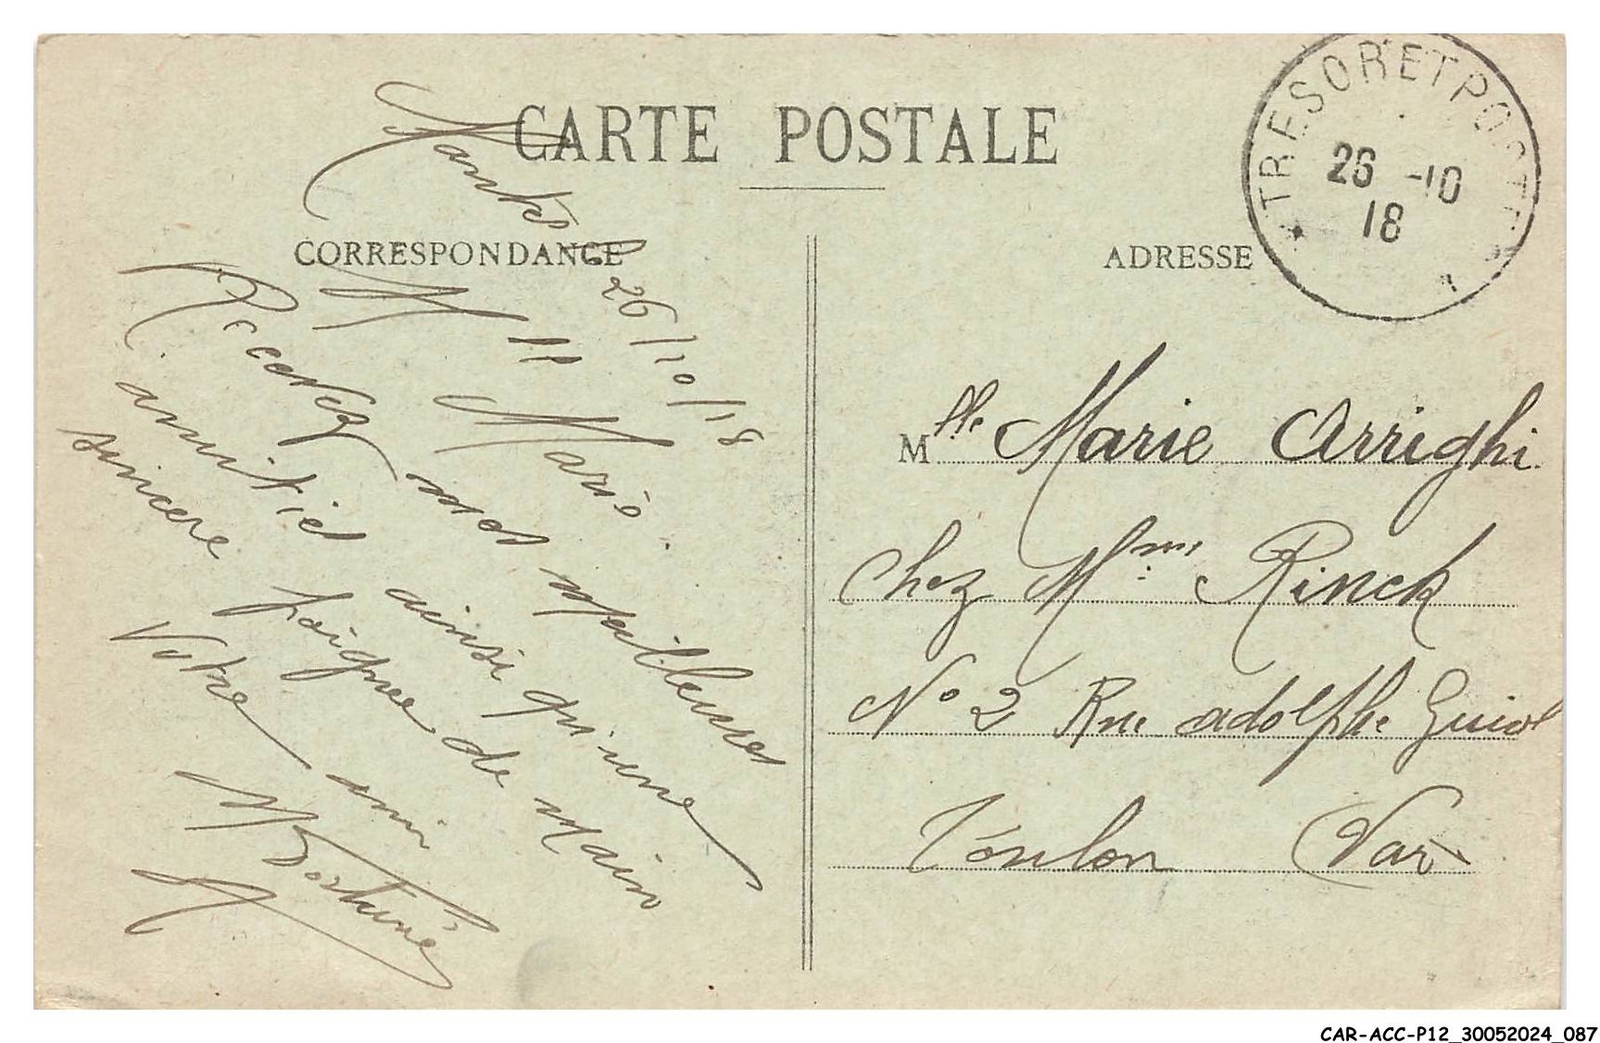 CARTE POSTALE
CORRESPONDANCE
ADRESSE
TRESOR ET POSTES
26 -10
18
26/10/18
Mlle Marie
Recevez mes meilleures
amitiés ainsi qu'une
sincère poignée de main
Votre ami
Mlle Marie Arrighi
chez Mme Rinck
N° 2 Rue adolphe Guiol
Toulon (Var)
CAR-ACC-P12_30052024_087